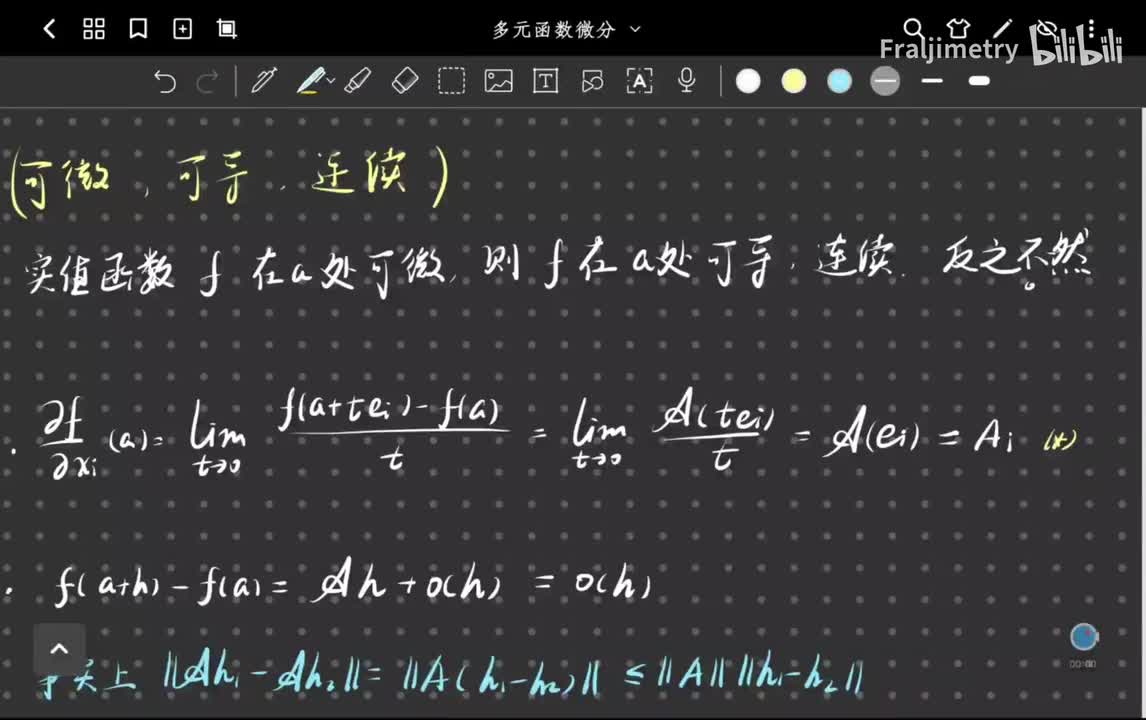 多元函数微分
Fraljimetry bilibili
T A
(可微，可导，连续)
实值函数 f 在a处可微，则 f 在a处可导，连续．反之不然。
· ∂f/∂xᵢ (a) = lim t→0 f(a+teᵢ)-f(a) / t = lim t→0 𝒜(teᵢ) / t = 𝒜(eᵢ) = Aᵢ (*)
· f(a+h) - f(a) = 𝒜h + o(h) = o(h)
事实上 ‖𝒜h₁ - 𝒜h₂‖ = ‖A(h₁-h₂)‖ ≤ ‖A‖ ‖h₁-h₂‖
00:00